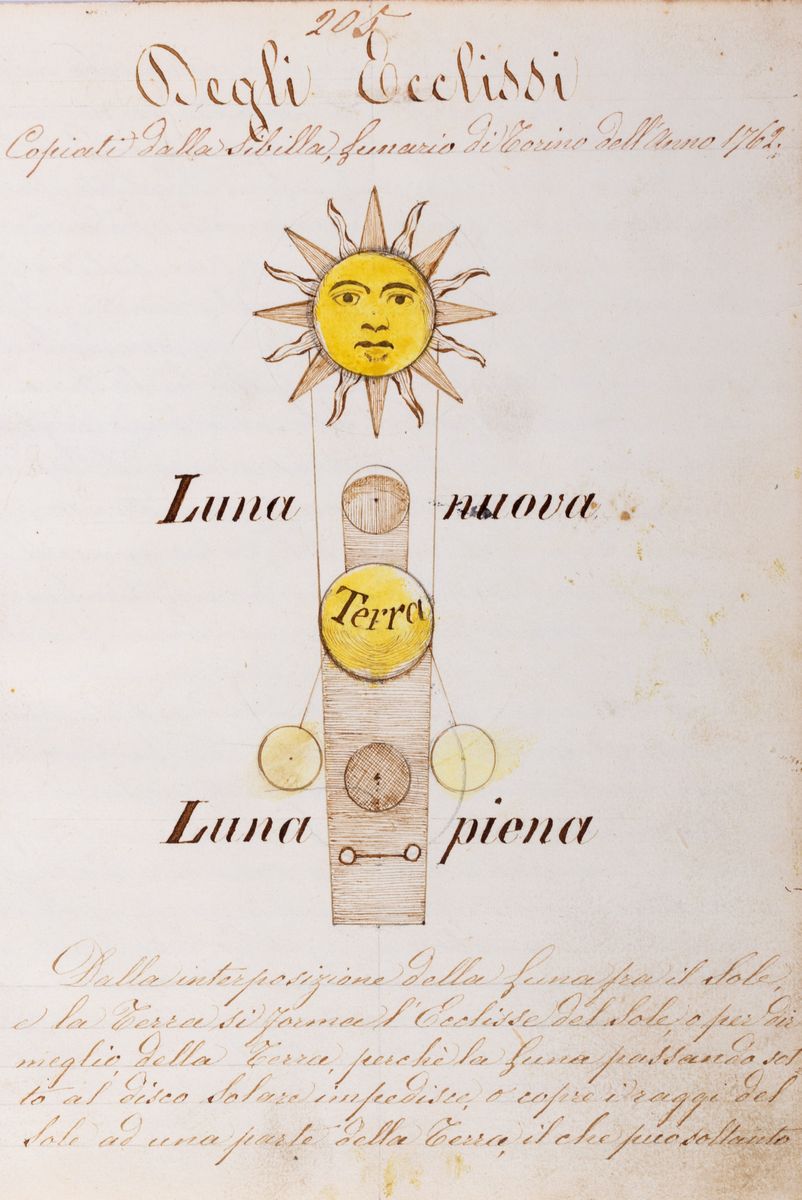 205
Degli Ecclissi
Copiati dalla Sibilla, Lunario di Torino dell'Anno 1762.
Luna nuova
Terra
Luna piena
Dalla interposizione della Luna fra il Sole,
e la Terra si forma l'Ecclisse del Sole, o per dir
meglio, della Terra, perchè la Luna passando sot-
to al disco Solare impedisce, o copre i raggi del
Sole ad una parte della Terra, il che può soltanto